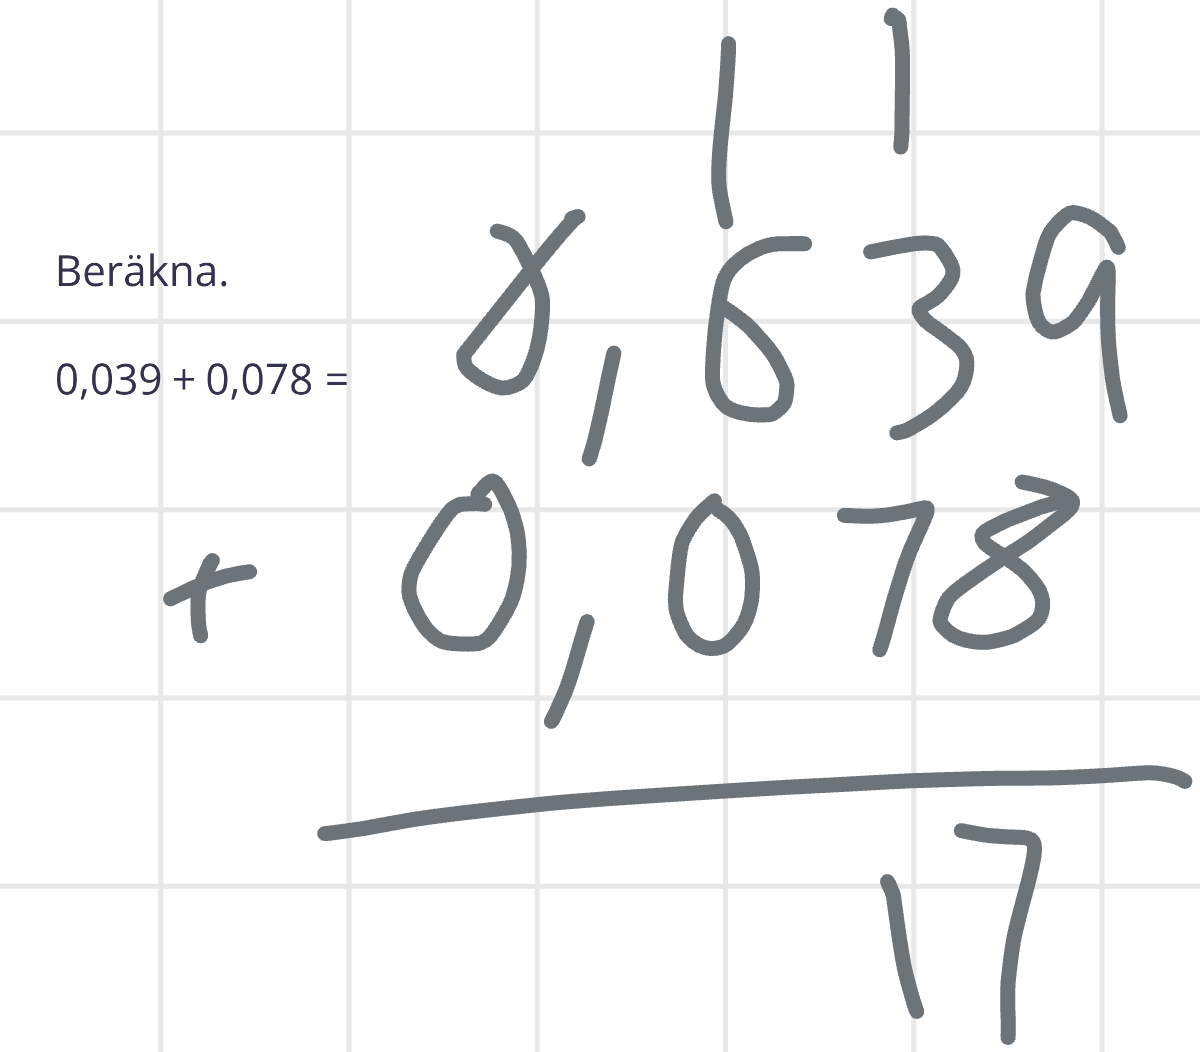 Beräkna.
0,039 + 0,078 =
1 1
0,039
+ 0,078
17